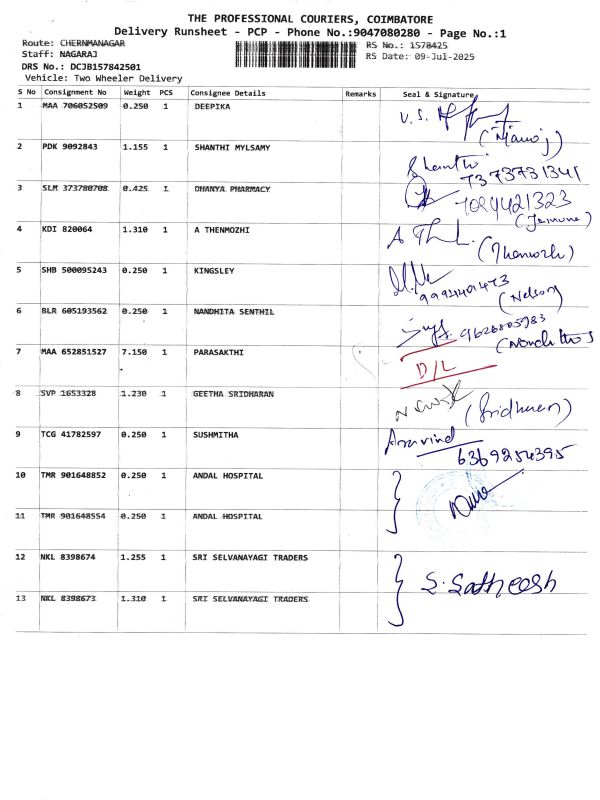 THE PROFESSIONAL COURIERS, COIMBATORE
Delivery Runsheet - PCP - Phone No.:9047080280 - Page No.:1
Route: CHERNMANAGAR RS No.: 1578425
Staff: NAGARAJ RS Date: 09-Jul-2025
DRS No.: DCJB157842501
Vehicle: Two Wheeler Delivery
S No Consignment No Weight PCS Consignee Details Remarks Seal & Signature
1 MAA 706052509 0.250 1 DEEPIKA U.S.
2 PDK 9092843 1.155 1 SHANTHI MYLSAMY Shanthi
7373731341
3 SLM 373780708 0.425 1 DHANYA PHARMACY
4 KDI 820064 1.310 1 A THENMOZHI A
5 SHB 500095243 0.250 1 KINGSLEY
(Nelson)
6 BLR 605193562 0.250 1 NANDHITA SENTHIL
7 MAA 652851527 7.150 1 PARASAKTHI D/L
8 SVP 1653328 1.230 1 GEETHA SRIDHARAN (Sridharan)
9 TCG 41782597 0.250 1 SUSHMITHA Aravind
6369254395
10 TMR 901648852 0.250 1 ANDAL HOSPITAL
11 TMR 901648554 0.250 1 ANDAL HOSPITAL
12 NKL 8398674 1.255 1 SRI SELVANAYAGI TRADERS S. Satheesh
13 NKL 8398673 1.310 1 SRI SELVANAYAGI TRADERS